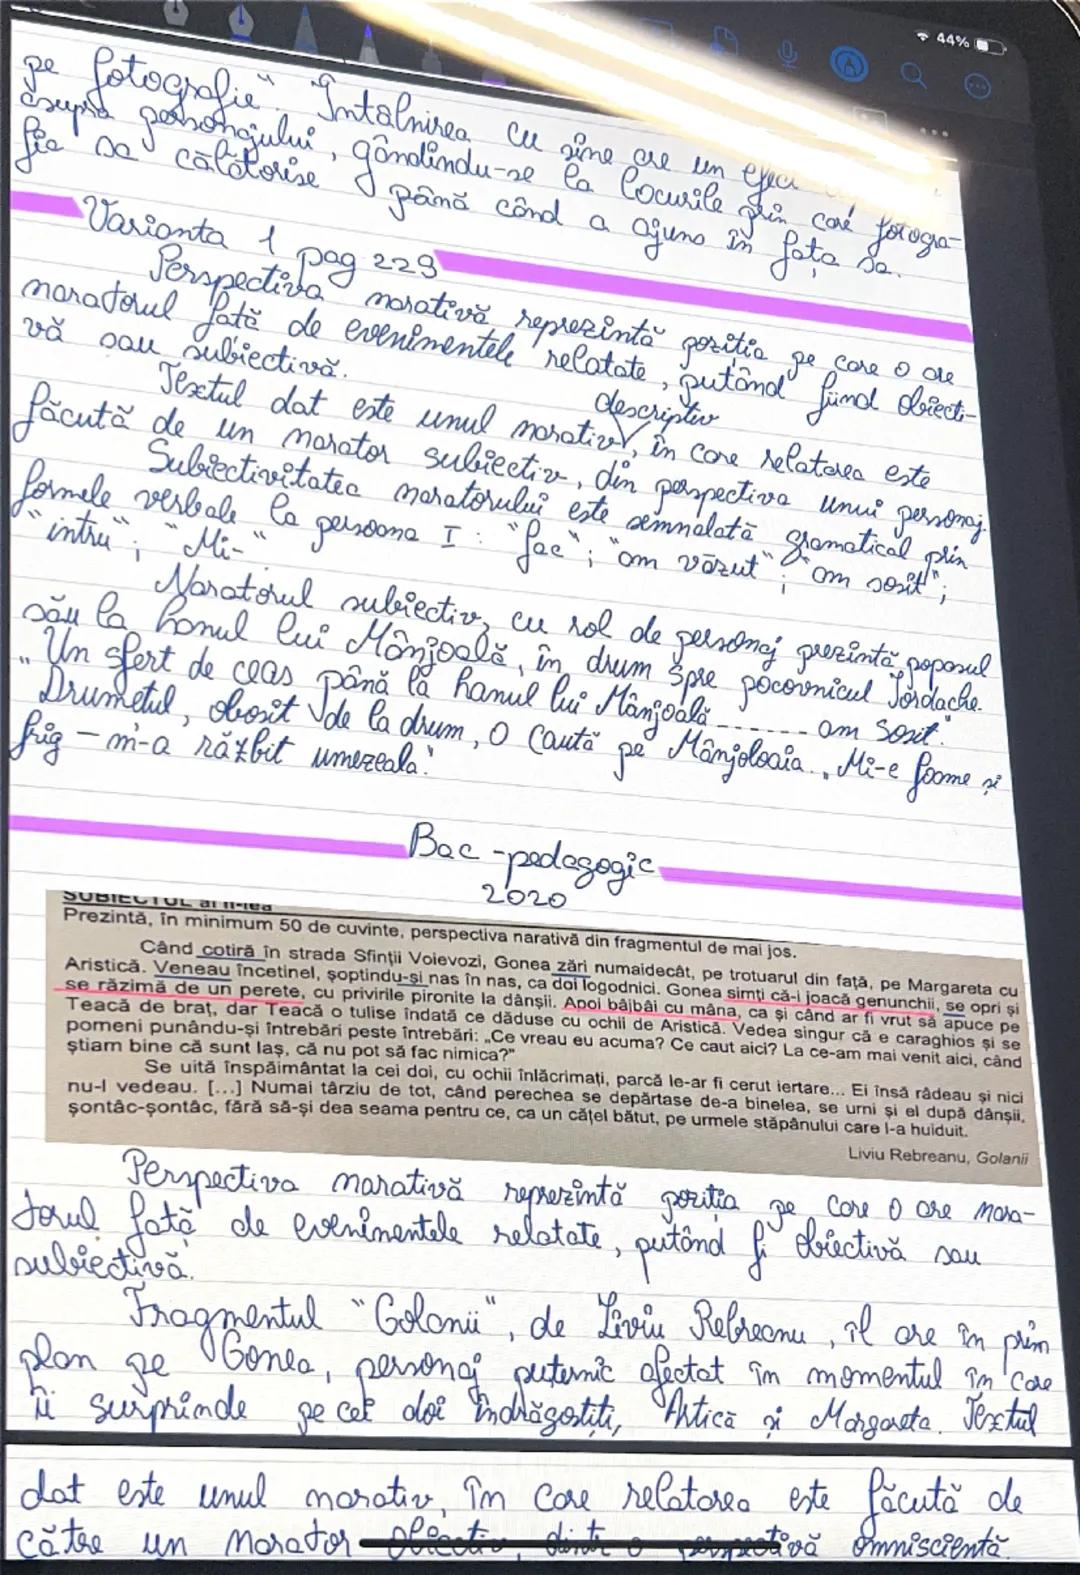 44%
pe fotografie". Întâlnirea cu sine are un efect
asupra personajului, gândindu-se la locurile prin care fotogra-
fia sa călătorise până când a ajuns în fața sa.
Varianta 1 pag 229
Perspectiva narativă reprezintă poziția pe care o are
naratorul față de evenimentele relatate, putând fiind obiecti-
vă sau subiectivă.
descriptiv
Textul dat este unul narativ, în care relatarea este
făcută de un narator subiectiv, din perspectiva unui personaj.
Subiectivitatea naratorului este semnalată gramatical prin
formele verbale la persoana I: "fac"; "am văzut"; "am sosit";
"intru"; "Mi-"
Naratorul subiectiv, cu rol de personaj prezintă popasul
său la hanul lui Mânjoală, în drum spre pocovnicul Iordache.
„Un sfert de ceas până la hanul lui Mânjoală ------ am sosit."
Drumețul, obosit de la drum, o caută pe Mânjoloaia „Mi-e foame și
frig – m-a răzbit umezeala."
Bac - pedagogic
2020
SUBIECTUL al II-lea
Prezintă, în minimum 50 de cuvinte, perspectiva narativă din fragmentul de mai jos.
Când cotiră în strada Sfinții Voievozi, Gonea zări numaidecât, pe trotuarul din față, pe Margareta cu
Aristică. Veneau încetinel, șoptindu-și nas în nas, ca doi logodnici. Gonea simți că-i joacă genunchii, se opri și
se răzimă de un perete, cu privirile pironite la dânșii. Apoi bâjbâi cu mâna, ca și când ar fi vrut să apuce pe
Teacă de braț, dar Teacă o tulise îndată ce dăduse cu ochii de Aristică. Vedea singur că e caraghios și se
pomeni punându-și întrebări peste întrebări: „Ce vreau eu acuma? Ce caut aici? La ce-am mai venit aici, când
știam bine că sunt laș, că nu pot să fac nimica?"
Se uită înspăimântat la cei doi, cu ochii înlăcrimați, parcă le-ar fi cerut iertare... Ei însă râdeau și nici
nu-l vedeau. [...] Numai târziu de tot, când perechea se depărtase de-a binelea, se urni și el după dânșii,
șontâc-șontâc, fără să-și dea seama pentru ce, ca un cățel bătut, pe urmele stăpânului care l-a huiduit.
Liviu Rebreanu, Golanii
Perspectiva narativă reprezintă poziția pe care o are nara-
torul față de evenimentele relatate, putând fi obiectivă sau
subiectivă.
Fragmentul "Golanii", de Liviu Rebreanu, îl are în prim
plan pe Gonea, personaj puternic afectat în momentul în care
îi surprinde pe cei doi îndrăgostiți, Artică și Margareta. Textul
dat este unul narativ, în care relatarea este făcută de
către un narator obiectiv, dintr-o perspectivă omniscientă.